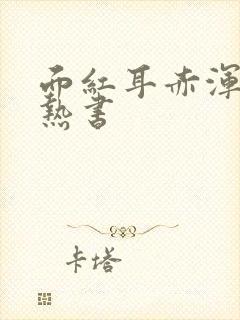 面紅耳赤渾
熱書
卡塔